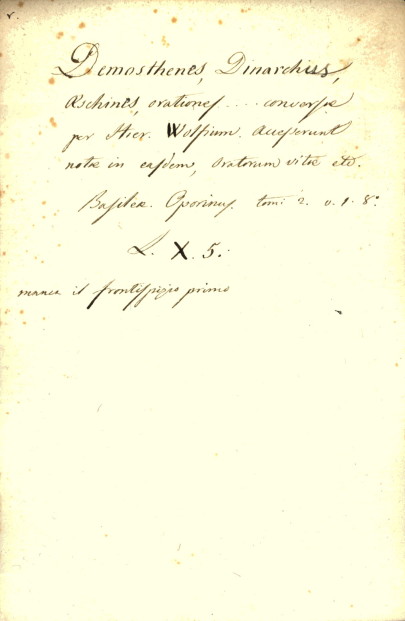 r.
Demosthenes, Dinarchus,
Æschines, orationes .... conversæ
per Hier. Wolfium. Accesserunt
notæ in easdem, oratorum vitæ etc.
Basileæ. Oporinus. tomi 2. v. 1. 8.°
L. X. 5.
manca il frontispizio primo